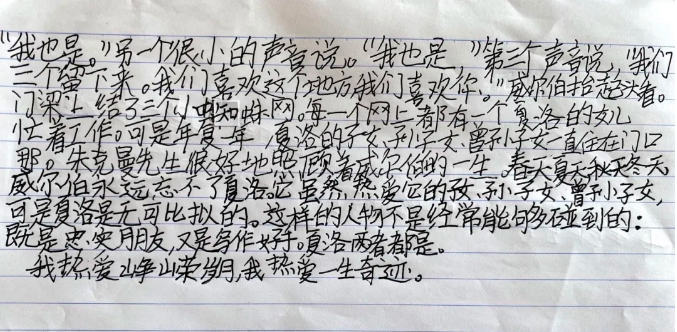 “我也是。”另一个很小的声音说。“我也是”第三个声音说,“我们
三个留下来。我们喜欢这个地方,我们喜欢你。”威尔伯抬起头看。
门梁上结了三个小蜘蛛网。每一个网上都有一个夏洛的女儿
忙着工作。可是年复一年 夏洛的子女、孙子女、曾孙子女一直住在门口
那。朱克曼先生很好地照顾着威尔伯的一生。春天夏天秋天冬天
威尔伯永远忘不了夏洛。它虽然热爱它的子女、孙子女、曾孙子女,
可是夏洛是无可比拟的。这样的人物不是经常能够碰到的:
既是忠实朋友,又是写作好手。夏洛两者都是。
我热爱峥嵘岁月,我热爱一生奇迹。